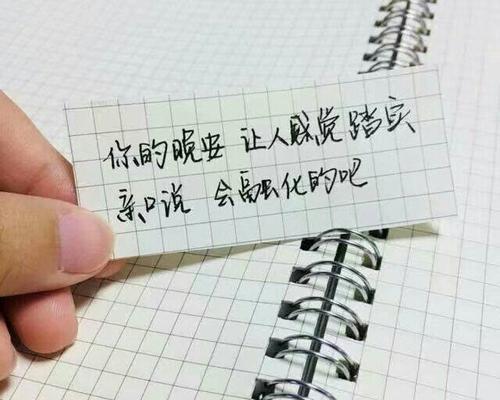 你的晚安 让人睬觉踏实
亲口说 会融化的吧